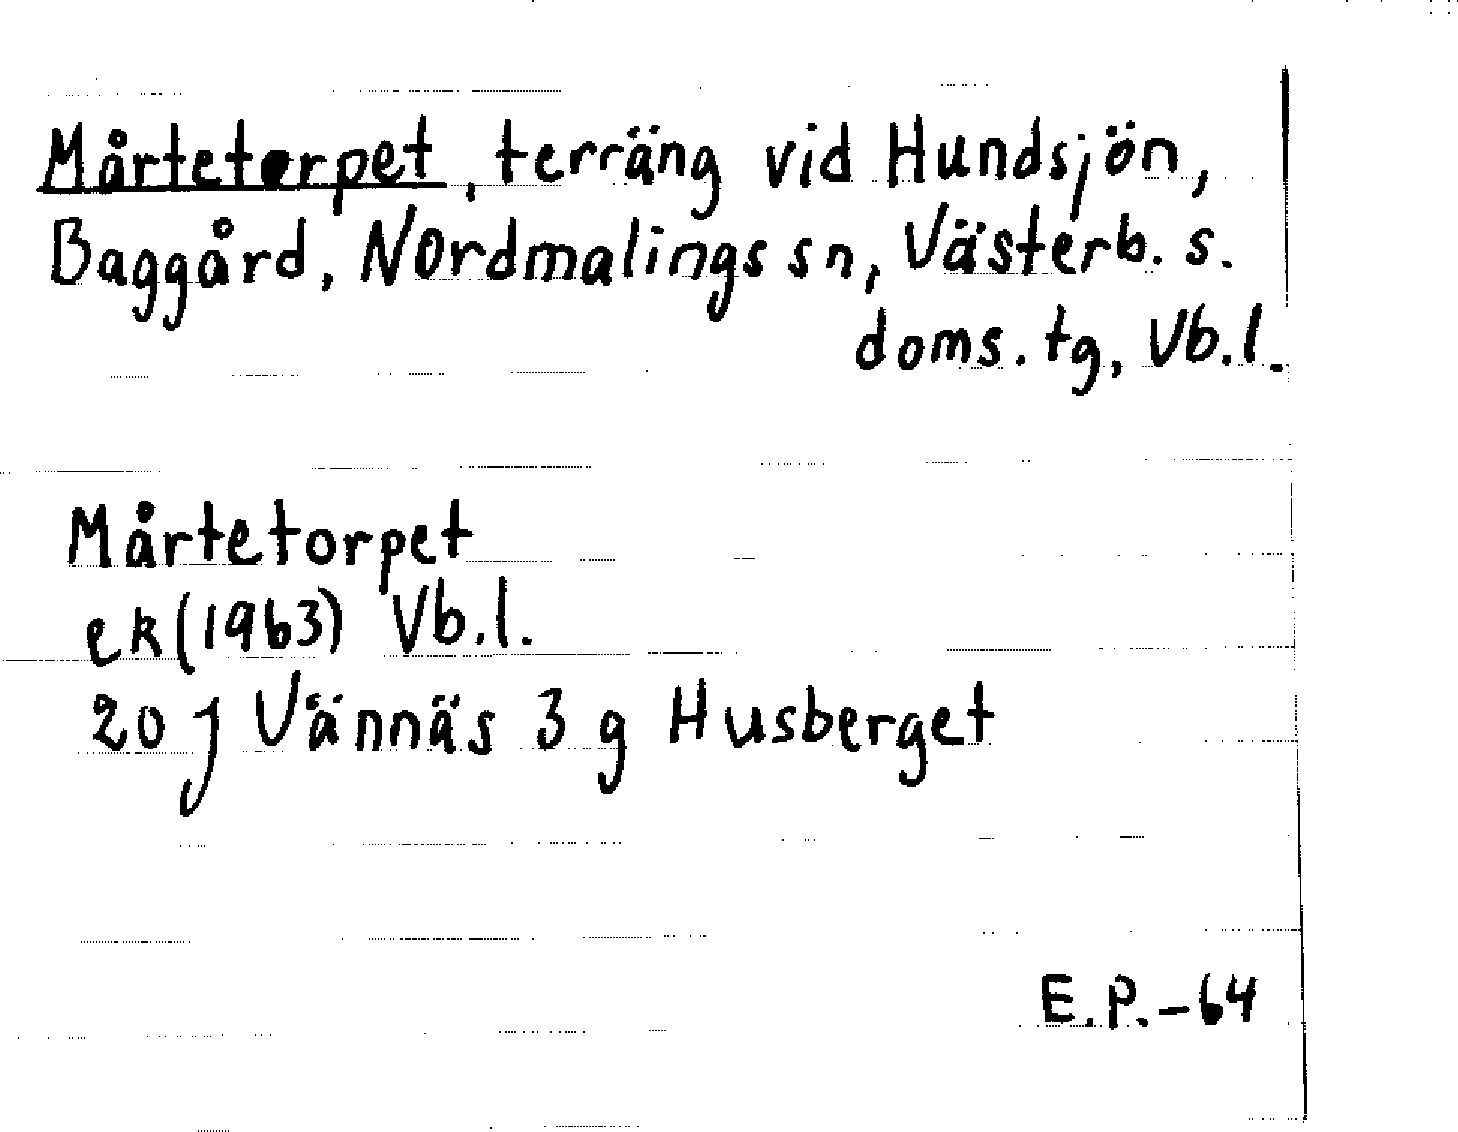 Mårtetorpet, terräng vid Hundsjön,
Baggård, Nordmalings sn, Västerb. s.
doms. tg, Vb. l.
Mårtetorpet
ek (1963) Vb. l.
20 J Vännäs 3 g Husberget
E.P. -64